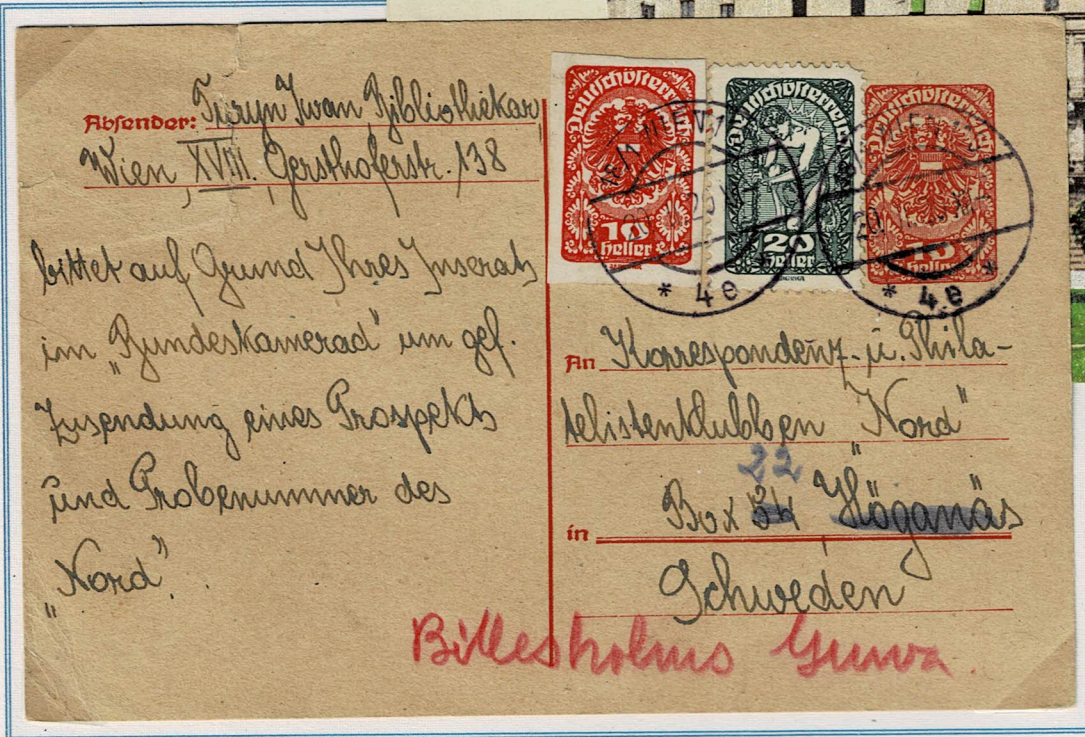 Absender: Turyn Iwan Bibliothekar
Wien, XVIII. Gersthoferstr. 138
bittet auf Grund Ihres Inserats
im „Bundeskamerad" um gef.
Zusendung eines Prospekts
und Probenummer des
„Nord".
Deutschösterreich
10
Heller
Deutschösterreich
20
Heller
Deutschösterreich
15
Heller
WIEN
* 4e *
* 4e *
An Korrespondenz- u. Phila-
telistenklubben „Nord"
22
in Box 34 Höganäs
Schweden
Billesholms Gruva.